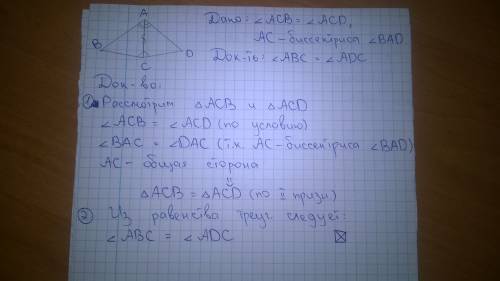 A
B
D
C
Дано: ∠ACB = ∠ACD,
AC - биссектриса ∠BAD
Док-ть: ∠ABC = ∠ADC
Док-во:
① Рассмотрим △ACB и △ACD
∠ACB = ∠ACD (по условию)
∠BAC = ∠DAC (т.к. AC - биссектриса ∠BAD)
AC - общая сторона
⇓
△ACB = △ACD (по II призн)
② Из равенства треуг. следует:
∠ABC = ∠ADC